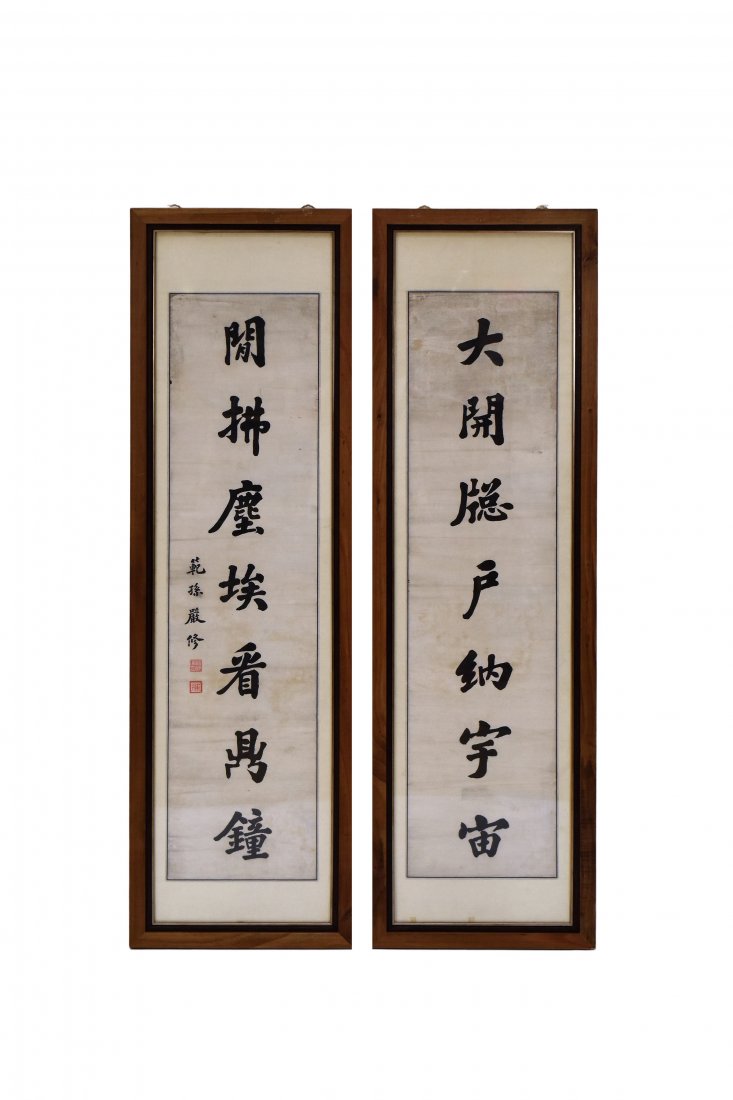 大開牕戶纳宇宙
閒拂塵埃看鼎鐘
範孫嚴修